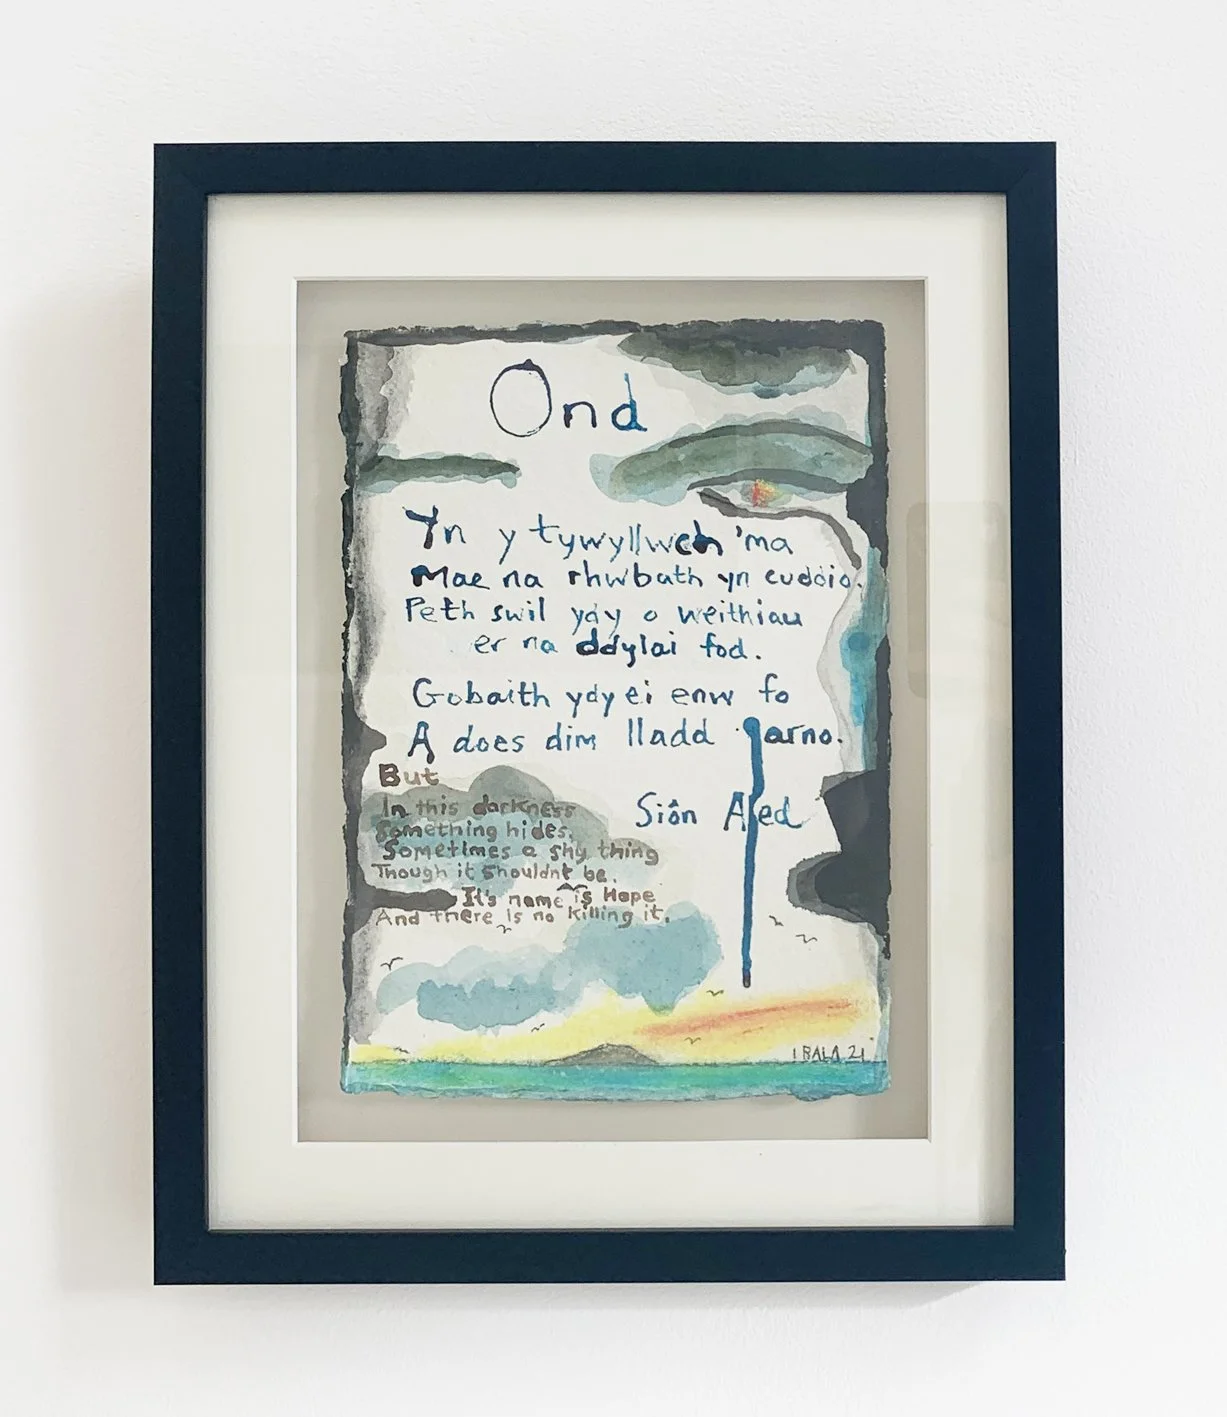 Ond
Yn y tywyllwch 'ma
Mae na rhwbath yn cuddio.
Peth swil ydy o weithiau
er na ddylai fod.
Gobaith ydy ei enw fo
A does dim lladd arno.
But
In this darkness
Something hides.
Sometimes a shy thing
Though it shouldnt be.
It's name is Hope
And there is no killing it.
Siôn Aled
I BALA 21